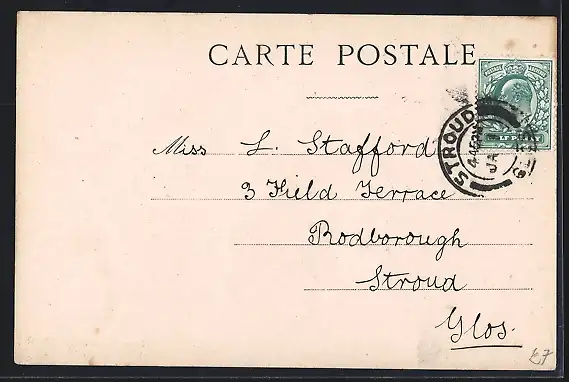 CARTE POSTALE
STROUD
4.45PM
JA
Miss L. Stafford
3 Field Terrace
Rodborough
Stroud
Glos.